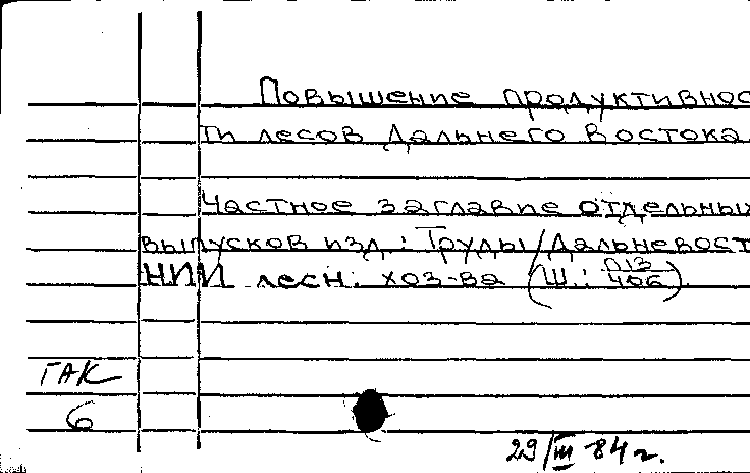 Повышение продуктивнос
ти лесов Дальнего Востока.
Частное заглавие отдельных
выпусков изд.: Труды/Дальневост
НИИ лесн. хоз-ва (Ш.: П13/406).
ГАК
6
29/III 84 г.